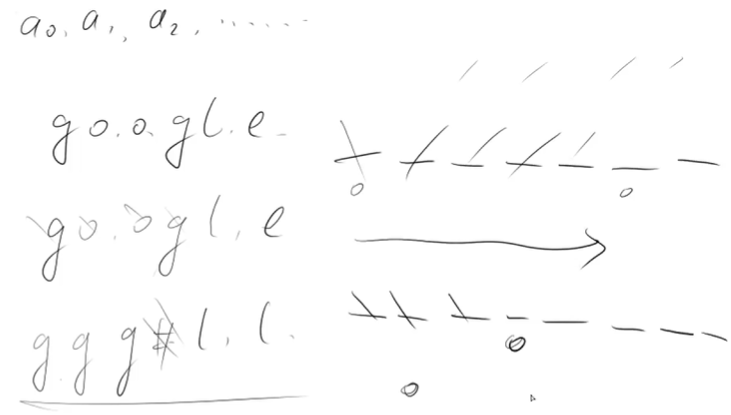 a0, a1, a2, ......
g o . o . g l . e
g o . o g l . e
g g g # l . l .